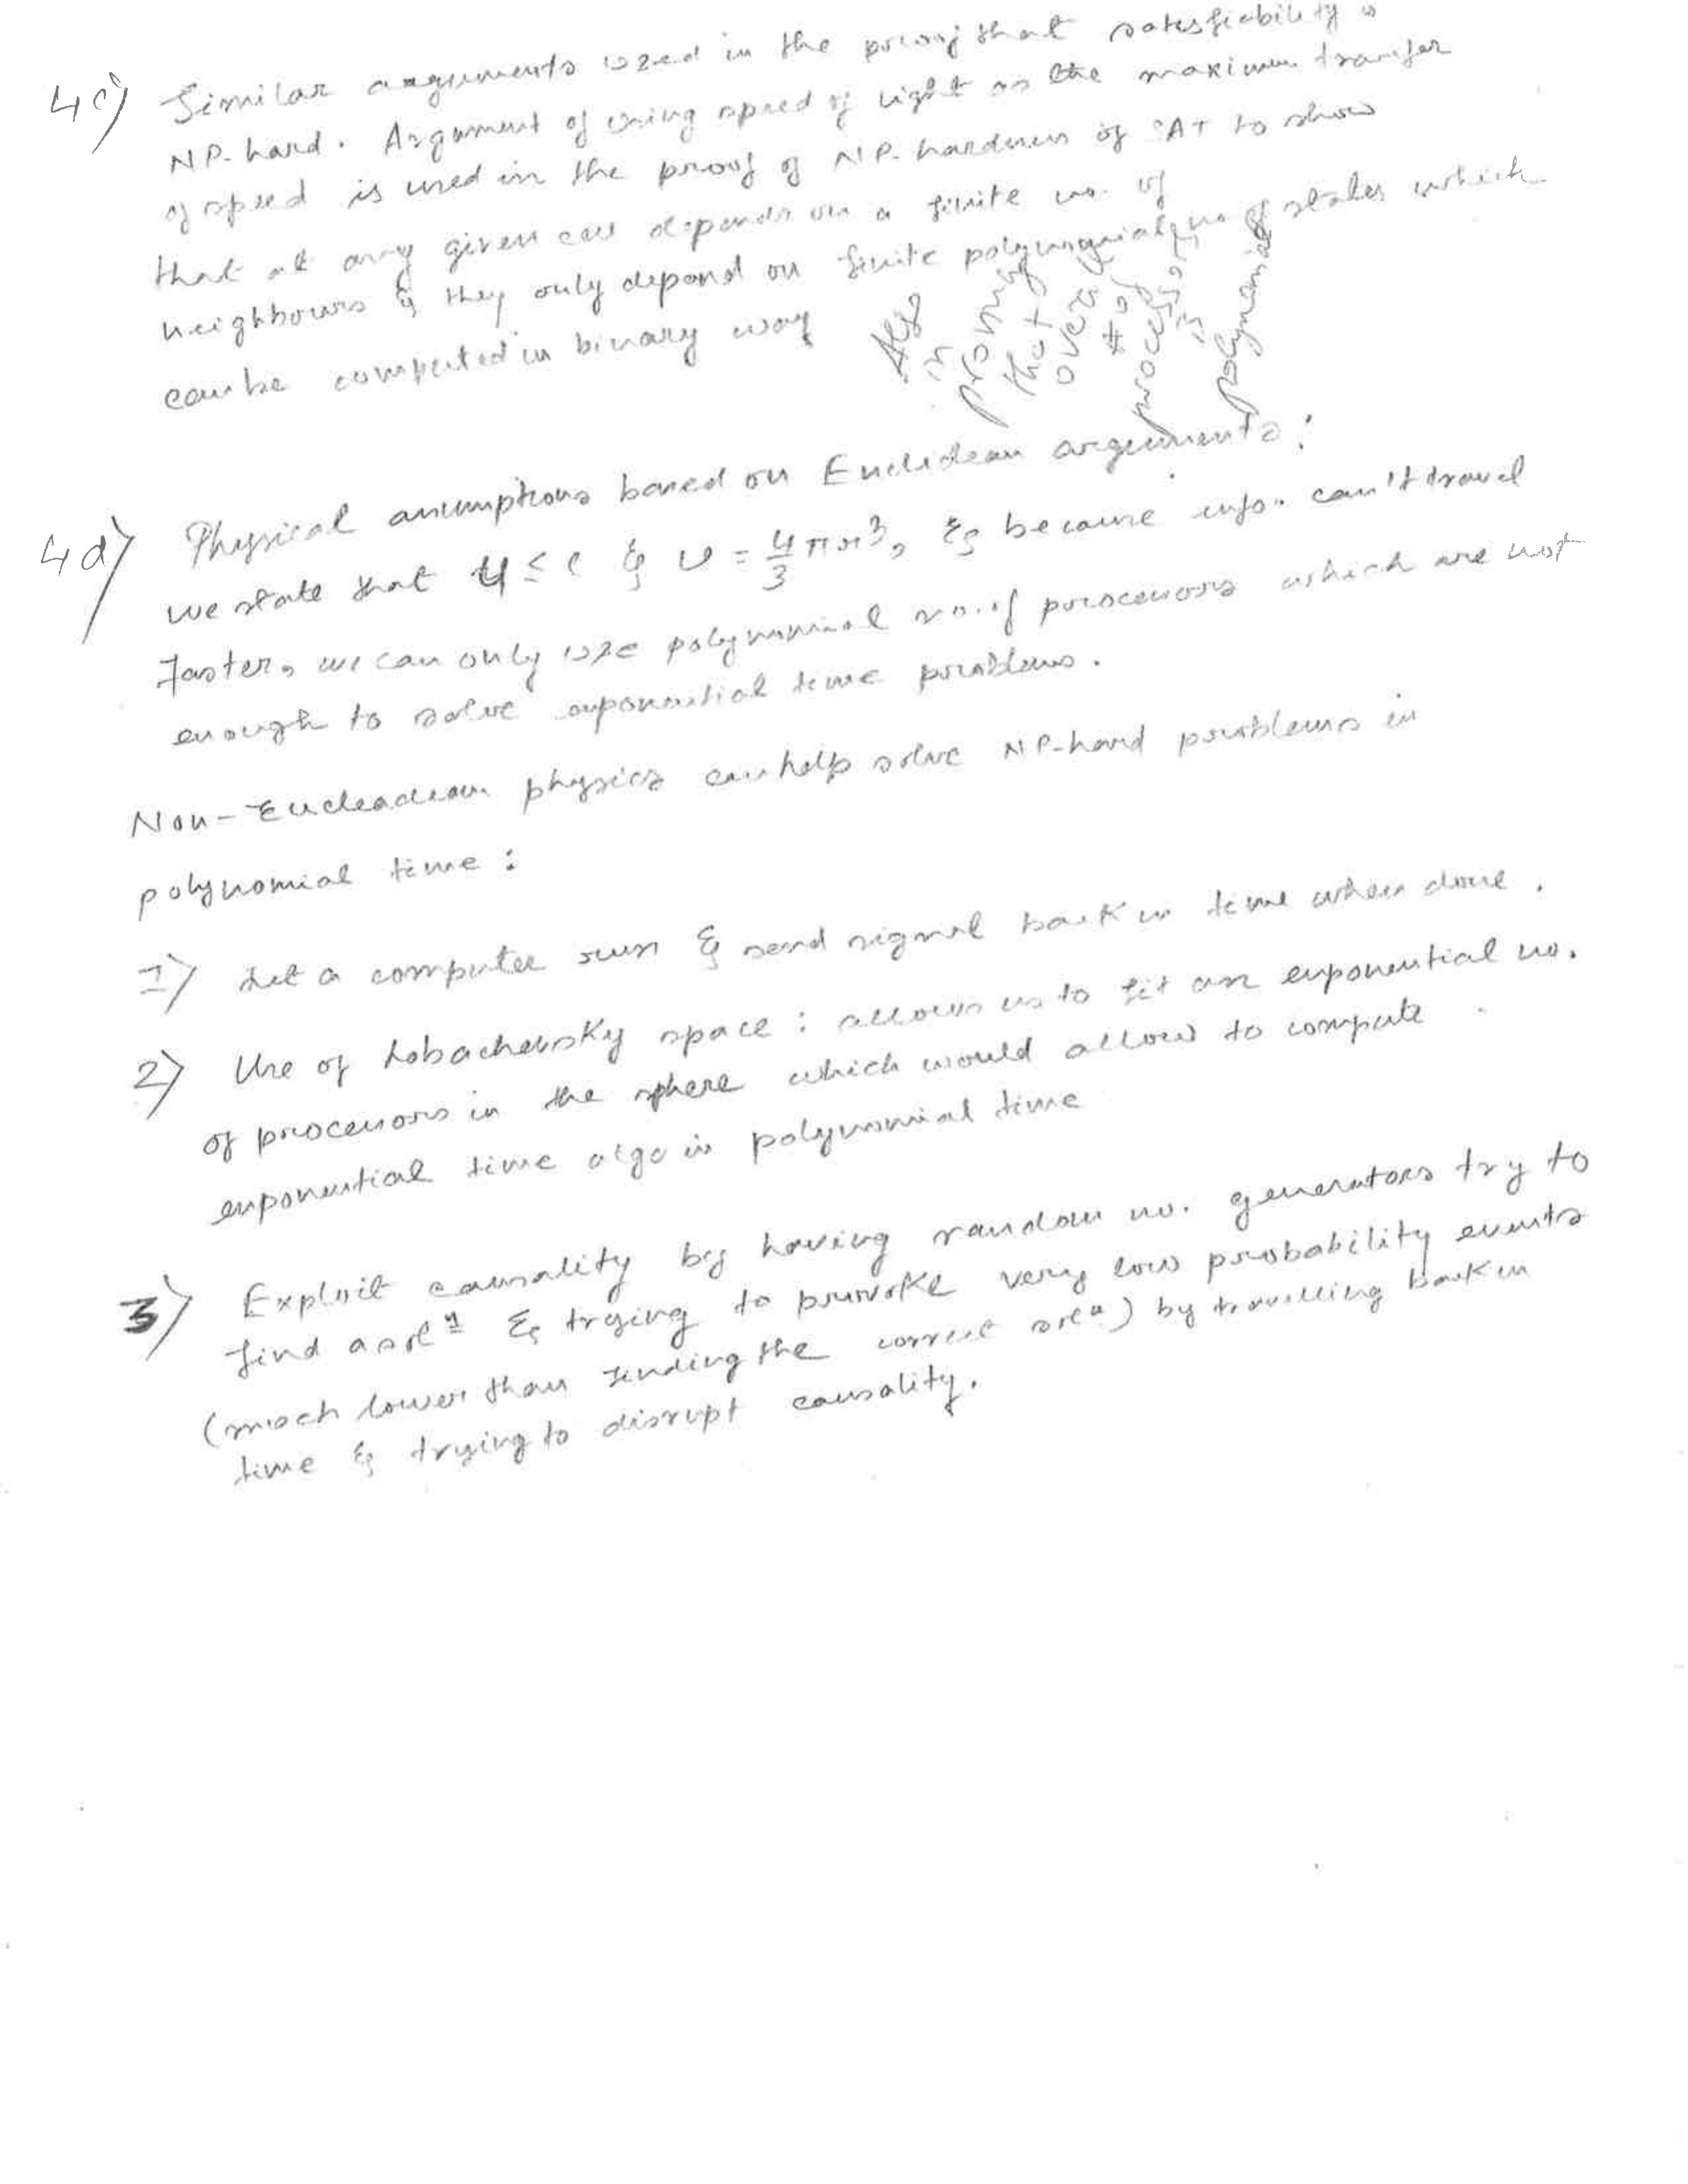 4c) Similar arguments used in the proof that satisfiability is
NP-hard. Argument of using speed of light as the maximum transfer
of speed is used in the proof of NP-hardness of SAT to show
that at any given cell depends on a finite no. of
neighbours & they only depend on finite polynomial no of states which
can be computed in binary way
Also
in
proving
that
overall
# of
processors
is
polynomial
4d) Physical assumptions based on Euclidean arguments:
we state that ≤ c & v = 4/3 πr³, & because info. can't travel
faster, we can only use polynomial no. of processors which are not
enough to solve exponential time problems.
Non-Eucleadean physics can help solve NP-hard problems in
polynomial time:
1) Let a computer run & send signal back in time when done.
2) Use of Lobachevsky space: allows us to fit an exponential no.
of processors in the sphere which would allow to compute
exponential time algo in polynomial time
3) Exploit causality by having random no. generators try to
find a solⁿ & trying to provoke very low probability events
(much lower than finding the correct solⁿ) by travelling back in
time & trying to disrupt causality.